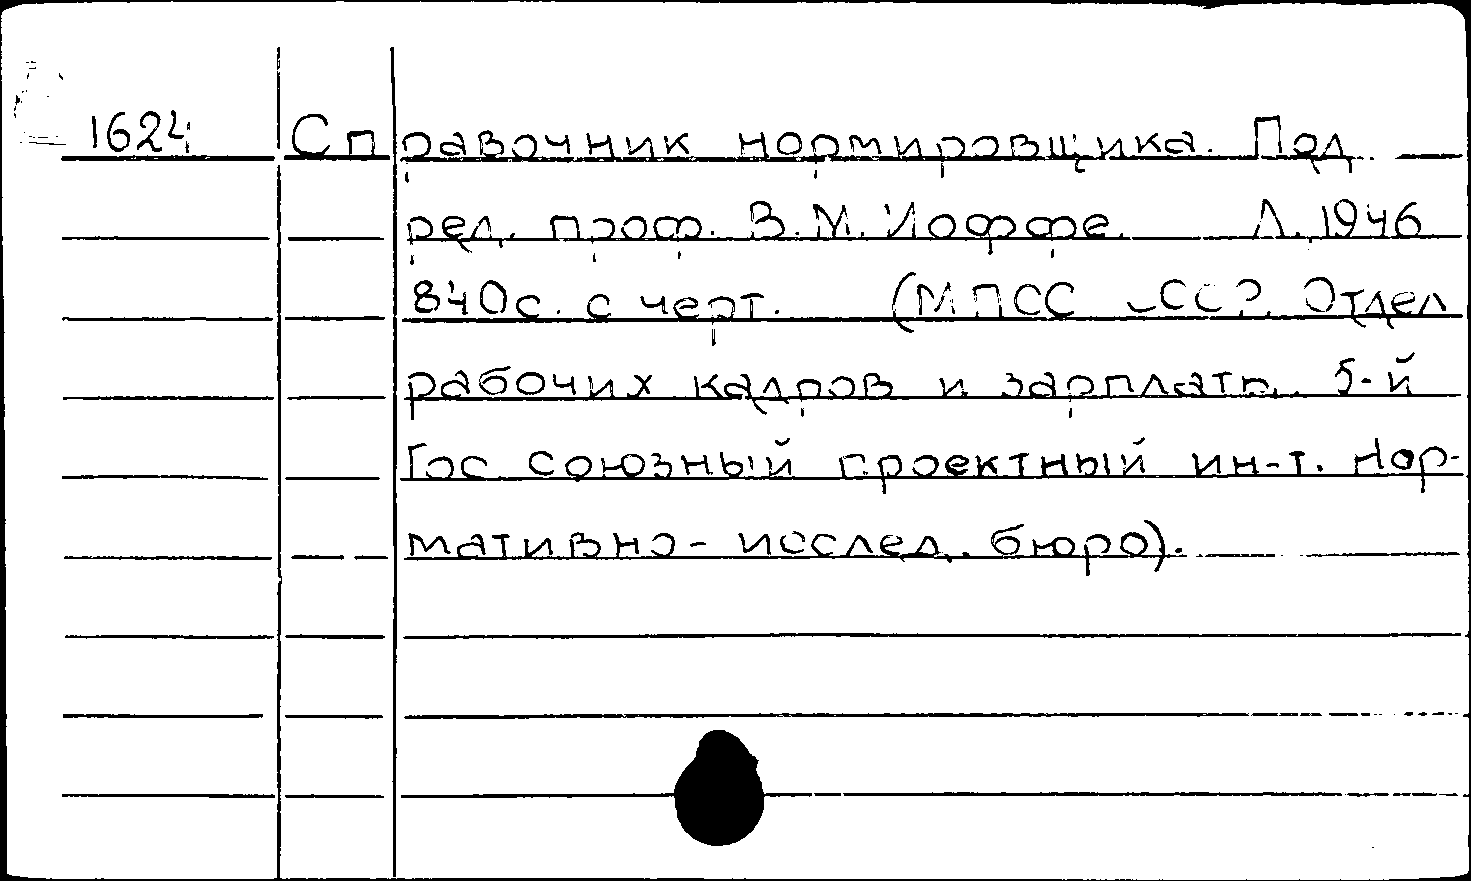 1624 Справочник нормировщика. Под
ред. проф. В.М. Иоффе. Л., 1946
840с. с черт. (МПСС СССР. Отдел
рабочих кадров и зарплаты. 5-й
Гос союзный проектный ин-т. Нор-
мативно-исслед. бюро).